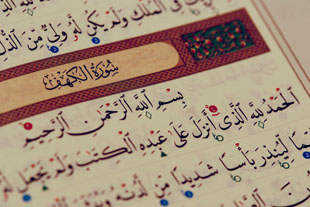 فِى ٱلْمُلْكِ وَلَمْ يَكُن لَّهُۥ وَلِىٌّ مِّنَ ٱلذُّلِّ
سُورَةُ الكَهْفِ
بِسْمِ ٱللَّهِ ٱلرَّحْمَٰنِ ٱلرَّحِيمِ
ٱلْحَمْدُ لِلَّهِ ٱلَّذِىٓ أَنزَلَ عَلَىٰ عَبْدِهِ ٱلْكِتَٰبَ وَلَمْ يَجْعَل لَّهُۥ
لِّيُنذِرَ بَأْسًا شَدِيدًا مِّن لَّدُنْهُ